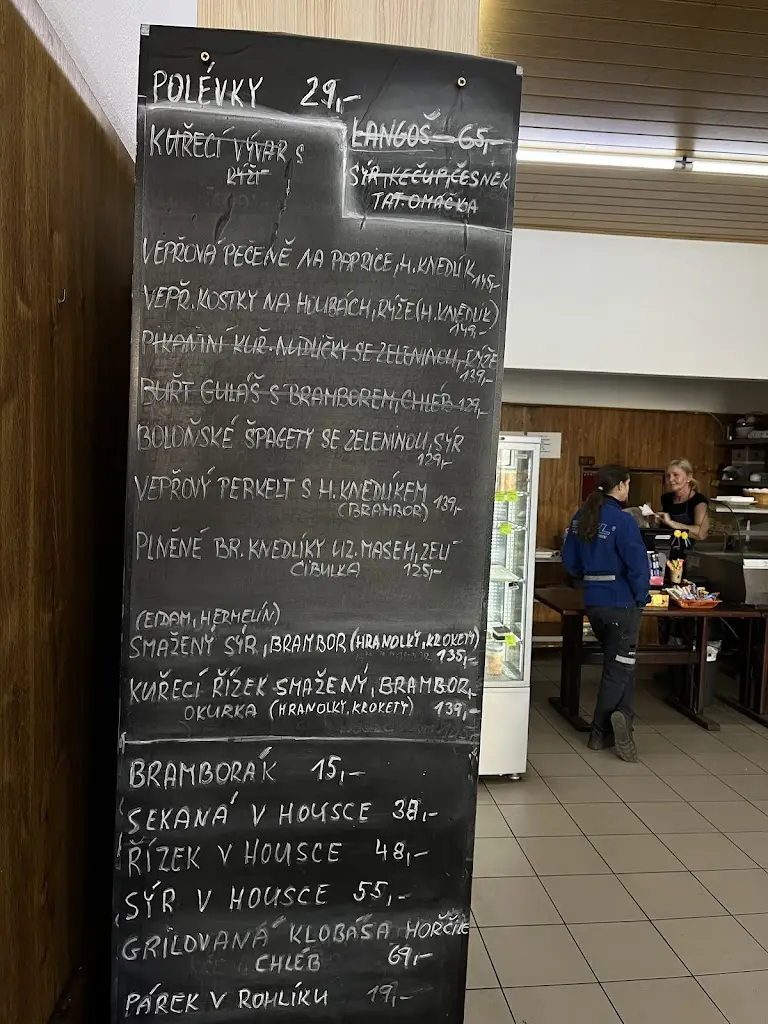 POLÉVKY 29,-
KUŘECÍ VÝVAR S
RÝŽÍ
LANGOŠ 65,-
SÝR, KEČUP, ČESNEK
TAT. OMAČKA
VEPŘOVÁ PEČENĚ NA PAPRICE, H. KNEDLÍK
145,-
VEPŘ. KOSTKY NA HOUBÁCH, RÝŽE (H. KNEDLÍK)
149,-
PIKANTNÍ KUŘ. NUDLIČKY SE ZELENINOU, RÝŽE
139,-
BUŘT GULÁŠ S BRAMBOREM, CHLÉB 129,-
BOLOŇSKÉ ŠPAGETY SE ZELENINOU, SÝR
129,-
VEPŘOVÝ PERKELT S H. KNEDLÍKEM 139,-
(BRAMBOR)
PLNĚNÉ BR. KNEDLÍKY UZ. MASEM, ZELÍ
CIBULKA 125,-
(EIDAM, HERMELÍN)
SMAŽENÝ SÝR, BRAMBOR (HRANOLKY, KROKETY)
135,-
KUŘECÍ ŘÍZEK SMAŽENÝ, BRAMBOR,
OKURKA (HRANOLKY, KROKETY) 139,-
BRAMBORÁK 15,-
SEKANÁ V HOUSCE 38,-
ŘÍZEK V HOUSCE 48,-
SÝR V HOUSCE 55,-
GRILOVANÁ KLOBÁSA HOŘČICE
CHLÉB 69,-
PÁREK V ROHLÍKU 19,-